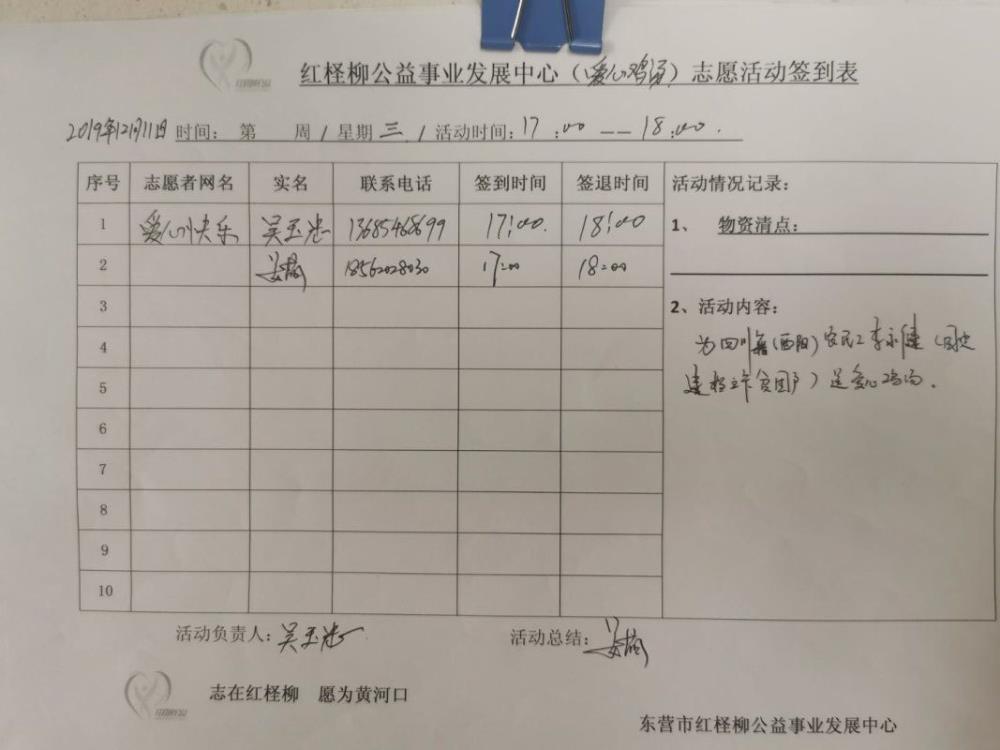 红柽柳公益事业发展中心（爱心鸡汤）志愿活动签到表
2019年12月11日 时间： 第 周 / 星期 三 / 活动时间：17:00 —— 18:00.
序号 志愿者网名 实名 联系电话 签到时间 签退时间
1 爱心快乐 吴玉忠 13685468699 17:00. 18:00
2 姜楠 18562028030 17:00 18:00
3
4
5
6
7
8
9
10
活动情况记录：
1、 物资清点：
2、活动内容：
为四川籍(酉阳)农民工李永健（
建档立卡贫困户）送爱心鸡汤.
活动负责人：吴玉忠
活动总结：姜楠
志在红柽柳 愿为黄河口
东营市红柽柳公益事业发展中心